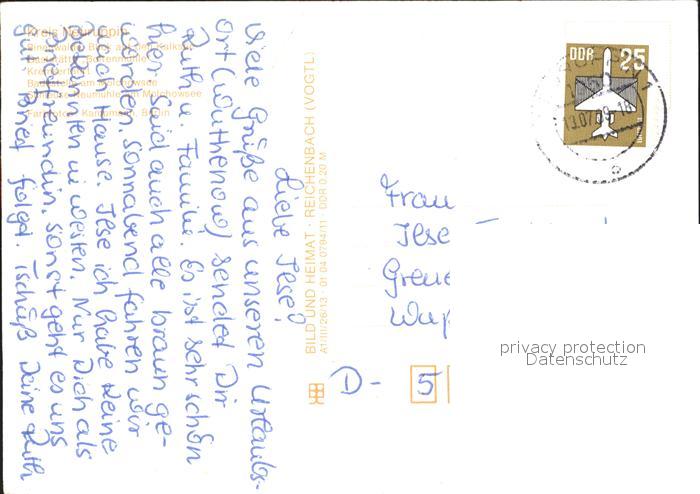 Kreis Neuruppin
Binenwalde Blick auf den Kalksee
Gaststätte Boltenmühle
Kremserfahrt
Badestelle am Molchowsee
Neumühle am Molchowsee
Farbfoto: Berlin
Liebe Ilse!
Viele Grüße aus unseren Urlaubs-
ort (Wuthenow) sendet Dir
Ruth u. Familie. Es ist sehr schön
hier. Said auch alle braun ge-
worden. Sonnabend fahren wir
nach Hause. Ilse ich habe keine
bekannten in Westen. Nur Dich als
Brieffreundin. Sonst geht es uns
gut. Brief folgt. Tschüß Deine Ruth
BILD UND HEIMAT · REICHENBACH (VOGTL)
A1/III/26/13 01 04 0784/11 DDR 0,20 M
DDR 25
13.07.89-18
Frau
Ilse
Greue
Wup
D- 5
privacy protection
Datenschutz